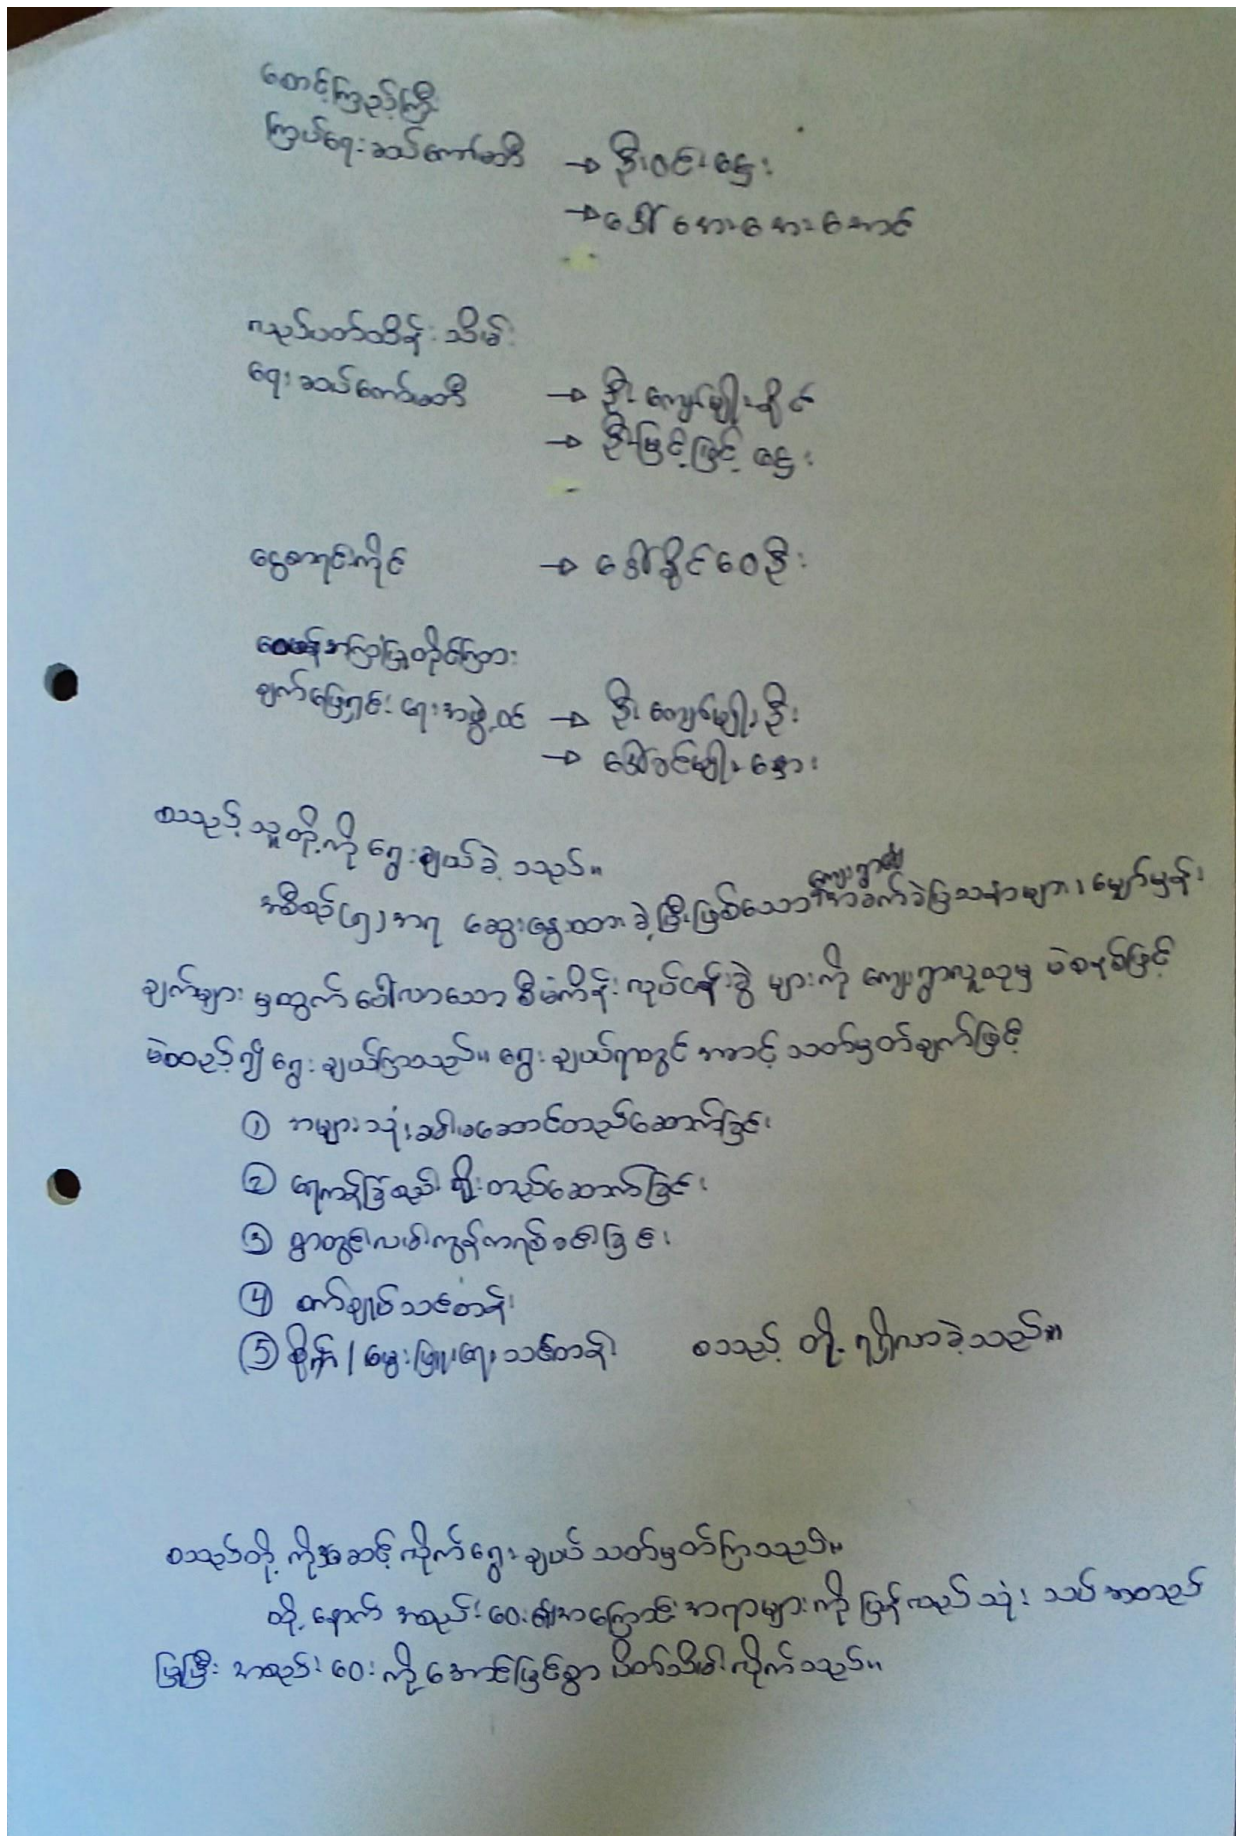 စောင့်ကြည့်ကြီး
ကြပ်ရေးဆပ်ကော်မတီ → ဦးဝင်းဌေး
→ ဒေါ်အေးအေးအောင်
လည်ပတ်ထိန်းသိမ်း
ရေးဆပ်ကော်မတီ → ဦးကျော်မျိုးနိုင်
→ ဦးမြင့်မြင့်ဌေး
ငွေစာရင်းကိုင် → ဒေါ်နိုင်ဝေဦး
ဝေဖန်အကြံပြုတိုင်ကြား
ချက်ဖြေရှင်းရေးအဖွဲ့ဝင် → ဦးကျော်မျိုးဦး
→ ဒေါ်ခင်မျိုးနွေး
စသည့် သူတို့ကို ရွေးချယ်ခဲ့သည်။
အစီစဉ်(၅)အရ ဆွေးနွေးထားခဲ့ပြီးဖြစ်သော ကျေးရွာ၏ အခက်ခဲပြဿနာများ၊ မျှော်မှန်း
ချက်များ မှထွက်ပေါ်လာသော စီမံကိန်းလုပ်ငန်းခွဲ များကို ကျေးရွာလူထုမှ မဲစနစ်ဖြင့်
မဲထည့်၍ ရွေးချယ်ကြသည်။ ရွေးချယ်ရာတွင် အဆင့်သတ်မှတ်ချက်ဖြင့်
① အများသုံးခန်းမဆောင်တည်ဆောက်ခြင်း
② ရေကန်ခြံစည်းရိုးတည်ဆောက်ခြင်း
③ ရွာတွင်းလမ်းကွန်ကရစ်ခင်းခြင်း
④ စက်ချုပ်သင်တန်း
⑤ စိုက်/မွေးမြူရေးသင်တန်း စသည့် တို့ ရရှိလာခဲ့သည်။
စသည်တို့ ကိုအဆင့်လိုက်ရွေးချယ် သတ်မှတ်ကြသည်။
ထို့နောက် အစည်းဝေး၏အကြောင်းအရာများကို ပြန်လည်သုံးသပ် အတည်
ပြုပြီး အစည်းဝေးကို အောင်မြင်စွာ ပိတ်သိမ်းလိုက်သည်။